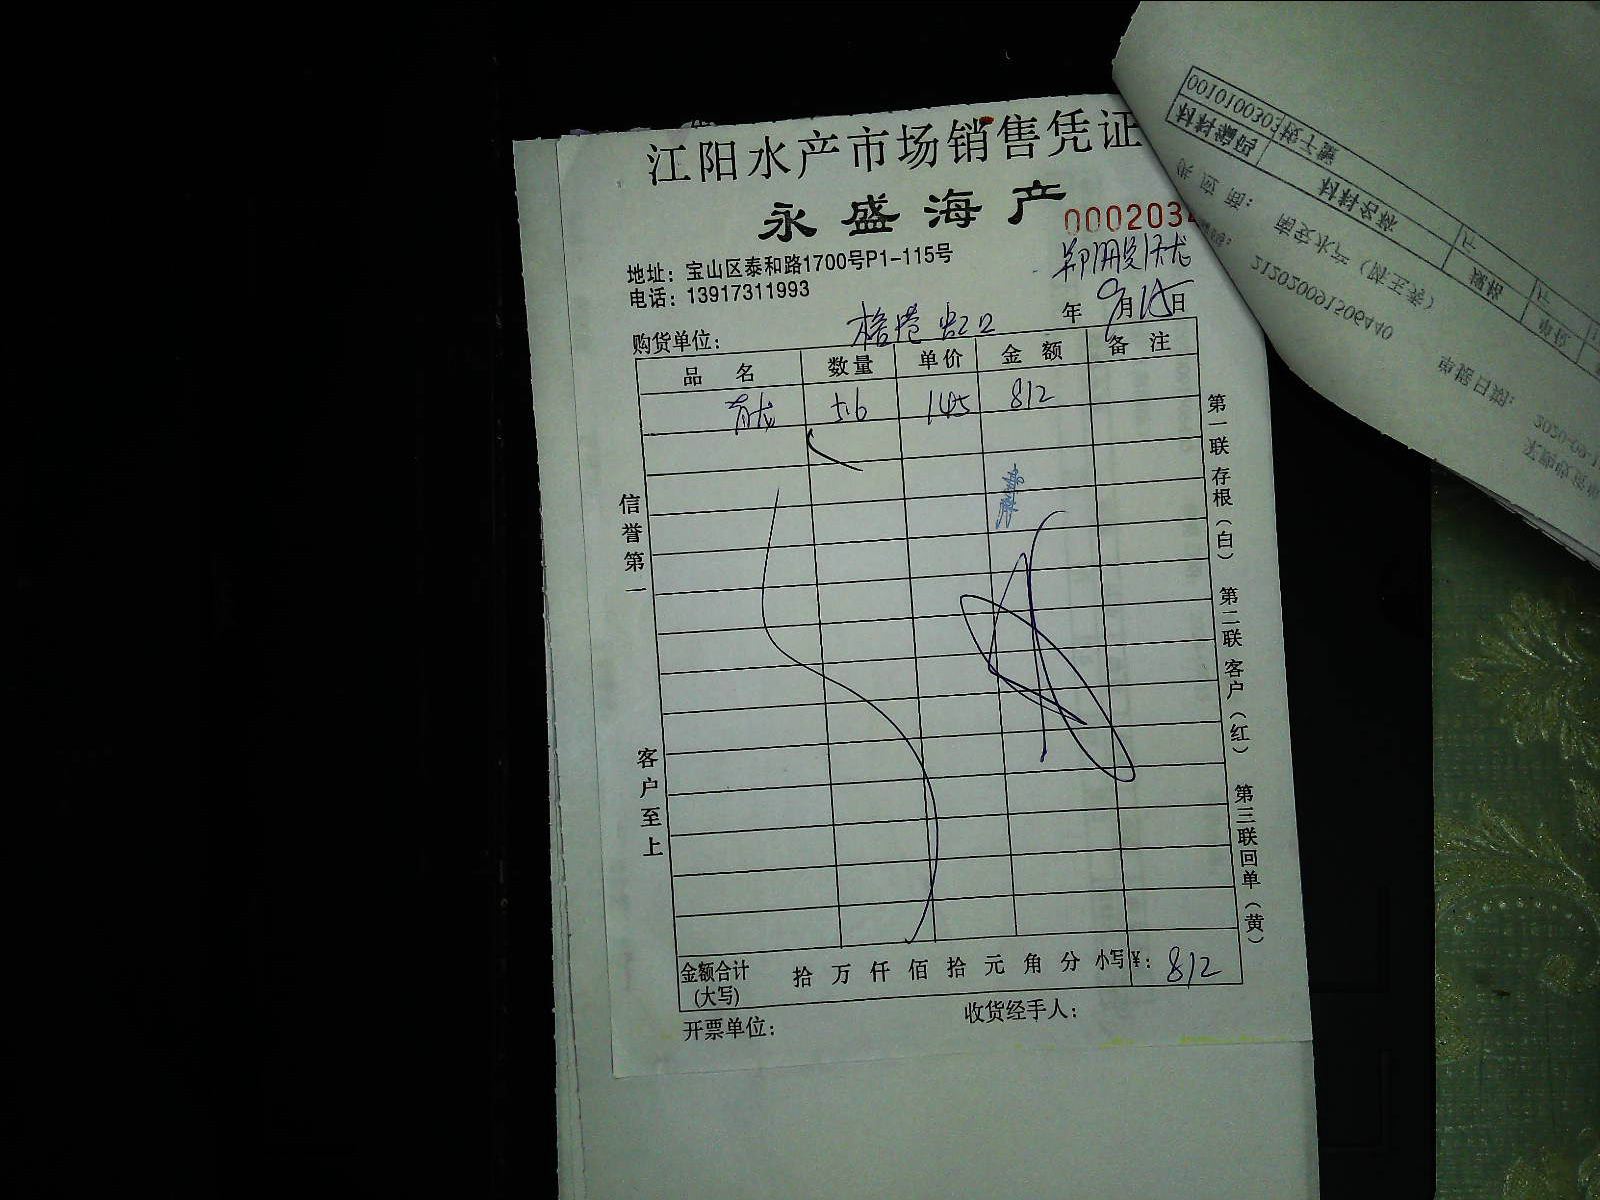 江阳水产市场销售凭证
永盛海产
000203
地址：宝山区泰和路1700号P1-115号
电话：13917311993
年 9月15日
购货单位： 虹口
品名 数量 单价 金额 备注
青龙 5.6 145 812
信誉第一
客户至上
第一联存根（白） 第二联客户（红） 第三联回单（黄）
金额合计(大写) 拾 万 仟 佰 拾 元 角 分 小写¥： 812
开票单位：
收货经手人：
00101003
212020091506440
单据日期： 2020-09-1